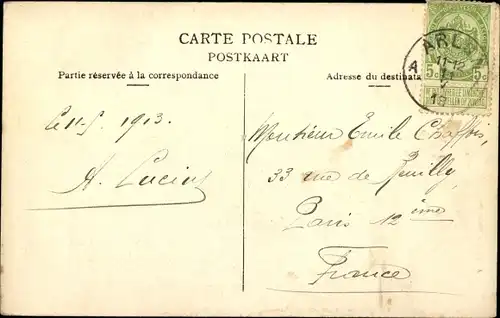 CARTE POSTALE
POSTKAART
Partie réservée à la correspondance
Adresse du destinata
ARLON
A
11-12
5c 5c
ce 11-5. 1913.
A. Lucius
Monsieur Emile
33 rue de Reuilly
Paris 12 ème
France